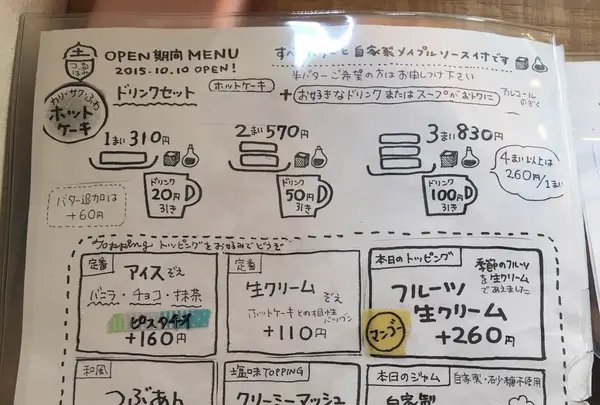 つるばみ
OPEN期間MENU
2015.10.10 OPEN!
自家製メイプルソースイすです
※バターご希望の方はお申しつけ下さい
カリ・サク・ふわ
ホットケーキ
ドリンクセット
ホットケーキ
+お好きなドリンクまたはスープがおトクに
アルコールのぞく
1まい310円
2まい570円
3まい830円
4まい以上は
260円/1まい
ドリンク
20円
引き
ドリンク
50円
引き
ドリンク
100円
引き
バター追加は
+60円
Topping トッピングをお好みでどうぞ
定番
アイスぞえ
バニラ・チョコ・抹茶
ピスタチオ
+160円
定番
生クリームぞえ
ホットケーキとの相性バツグン
+110円
本日のトッピング
季節のフルーツ
を生クリーム
であえました
フルーツ
生クリーム
マンゴー
+260円
和風
つぶあん
塩味TOPPING
クリーミーマッシュ
本日のジャム
自家製・砂糖不使用
自家製